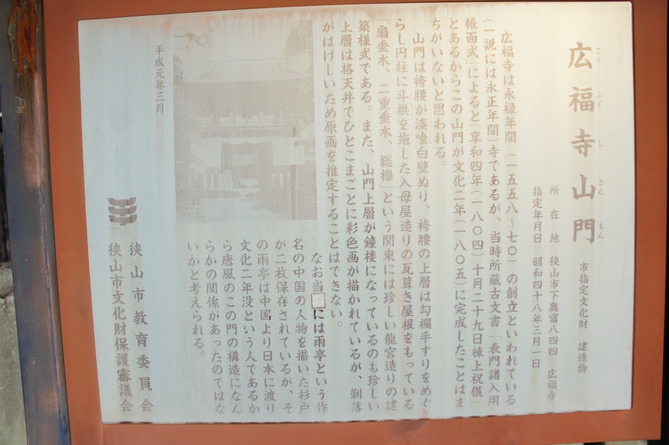 広福寺山門
こうふくじさんもん
市指定文化財 建造物
所在地 狭山市下奥富八四四 広福寺
指定年月日 昭和四十八年三月一日
広福寺は永禄年間(一五五八~七〇)の創立といわれている
(一説には永正年間)寺であるが、当時所蔵古文書「表門諸入用
帳面式」によると享和四年(一八〇四)十月二十九日棟上祝儀」
とあるからこの山門が文化二年(一八〇五)に完成したことはま
ちがいないと思われる。
山門は袴腰が漆喰白壁ぬり、袴腰の上層は勾欄手すりをめぐ
らし円柱に斗栱を施した入母屋造りの瓦葺き屋根をもっている
「扇垂木、二重垂木、総欅」という関東には珍しい龍宮造りの建
築様式である。また、山門上層が鐘楼になっているのも珍しい
上層は格天井でひとこまごとに彩色画が描かれているが、剝落
がはげしいため原画を推定することはできない。
なお当 には雨亭という作
名の中国の人物を描いた杉戸
が二枚保存されているが、そ
の雨亭は中国より日本に渡り
文化二年没という人であるか
ら唐風のこの門の構造になん
らかの関係があったのではな
いかと考えられる。
平成元年三月
狭山市教育委員会
狭山市文化財保護審議会